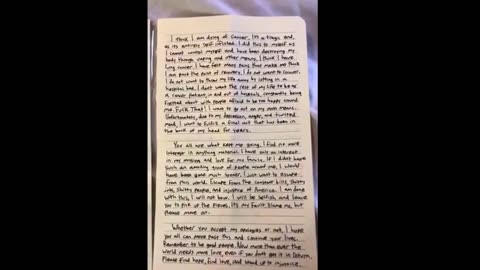 I think I am dying of cancer. It's a tragic end,
as its entirely self inflicted. I did this to myself as
I cannot control myself and have been destroying my
body through vaping and other means. I think I have
lung cancer. I have felt many pains that make me think
I am past the point of recovery. I do not want to cancer.
I do not want to throw my life away by rotting in a
hospital bed. I dont want the rest of my life to be as
a cancer patient, in and out of hospitals, constantly being
fussed about with people afraid to be too happy around
me. Fuck that! I want to go out on my own means.
Unfortunately, due to my depression, anger, and twisted
mind, I want to fulfill a final act that has been in
the back of my head for years.
You all are what kept me going. I find no more
interest in anything material. I have only an interest
in my mission and love for my family. If I didn't have
such an amazing group of people around me, I would
have been gone much sooner. I just want to escape
from this world. Escape from the constant bills, shitty
jobs, shitty people, and injustice of America. I am done
with this, I will not bow. I will be selfish, and leave
you to pick up the pieces. Its my fault. Blame me, but
please move on.
Whether you accept my apologies or not, I hope
you all can move past this and continue your lives.
Remember to be good people. Now more than ever the
world needs more love, even if you don't get it in return.
Please find hope, find love, and stand up to injustice.